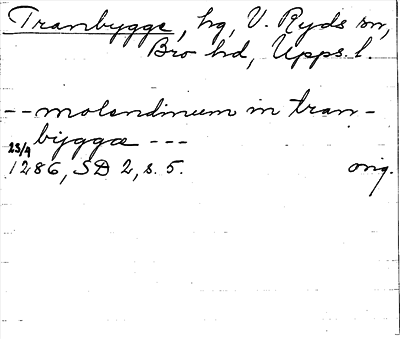 Tranbygge, hg, V. Ryds sn,
Bro hd, Upps. l.
-- molendinum in tran-
byggæ ---
23/9
1286, SD 2, s. 5. orig.